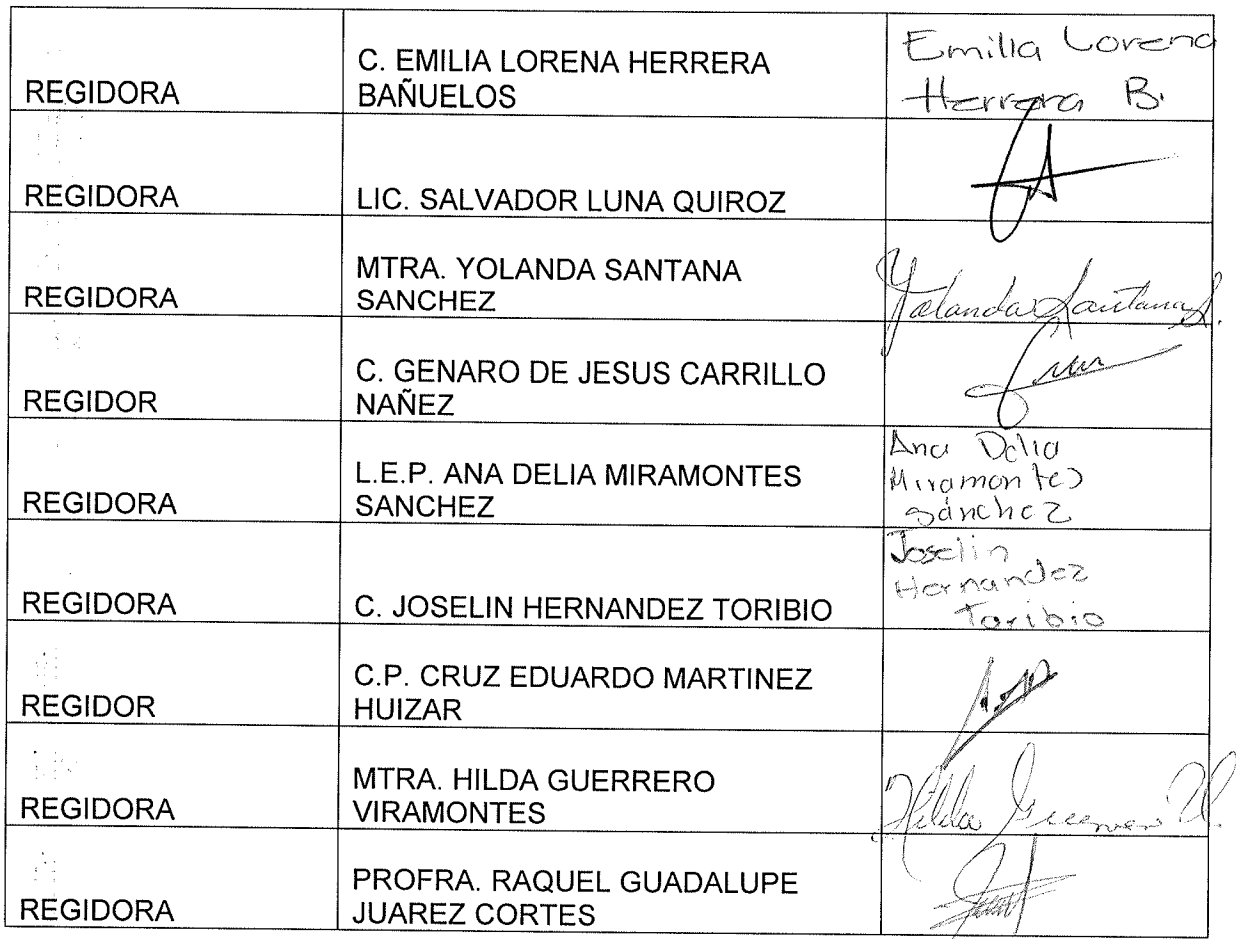 REGIDORA
C. EMILIA LORENA HERRERA
BAÑUELOS
Emilia Lorena
Herrera B.
REGIDORA
LIC. SALVADOR LUNA QUIROZ
REGIDORA
MTRA. YOLANDA SANTANA
SANCHEZ
Yolanda Santana S.
REGIDOR
C. GENARO DE JESUS CARRILLO
NAÑEZ
REGIDORA
L.E.P. ANA DELIA MIRAMONTES
SANCHEZ
Ana Delia
Miramontes
Sánchez
REGIDORA
C. JOSELIN HERNANDEZ TORIBIO
Joselin
Hernandez
Toribio
REGIDOR
C.P. CRUZ EDUARDO MARTINEZ
HUIZAR
REGIDORA
MTRA. HILDA GUERRERO
VIRAMONTES
Hilda Guerrero V.
REGIDORA
PROFRA. RAQUEL GUADALUPE
JUAREZ CORTES